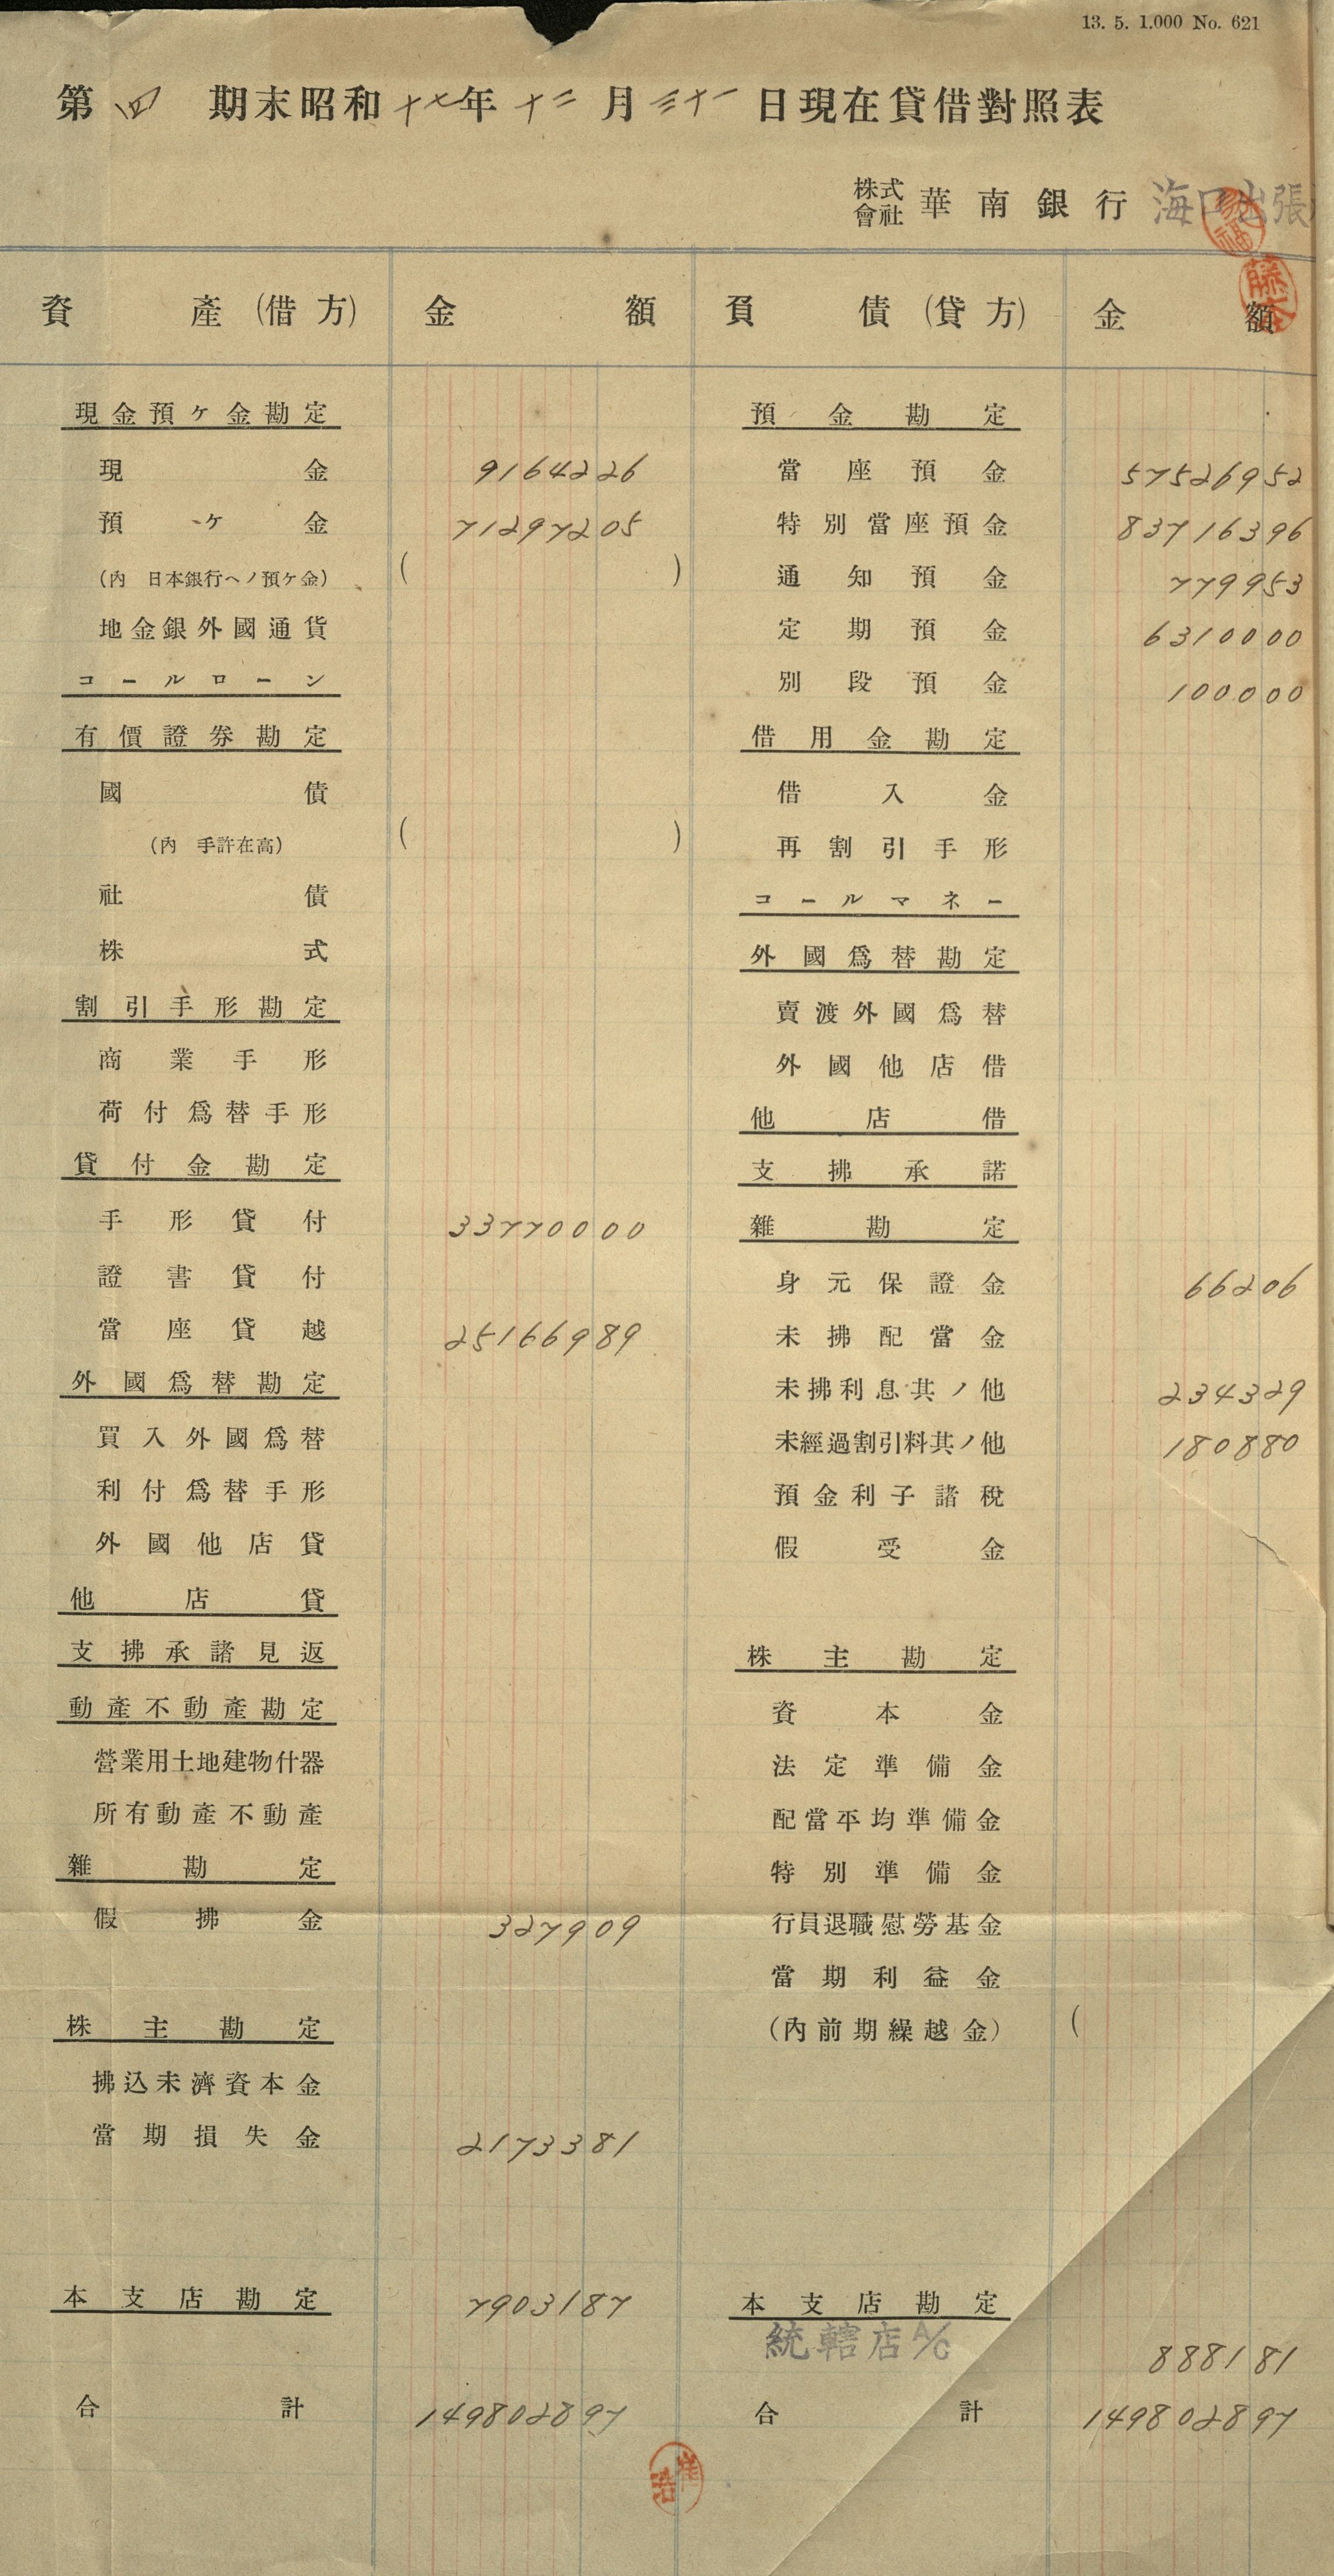 13. 5. 1.000 No. 621
第 四 期末昭和十七年十二月三十一日現在貸借對照表
株式會社 華南銀行 海口出張
資產(借方) 金額
現金預ケ金勘定
現金 9164226
預ケ金 71297205
(內 日本銀行ヘノ預ケ金) ( )
地金銀外國通貨
コールローン
有價證券勘定
國債
(內 手許在高) ( )
社債
株式
割引手形勘定
商業手形
荷付爲替手形
貸付金勘定
手形貸付 33770000
證書貸付
當座貸越 25166989
外國爲替勘定
買入外國爲替
利付爲替手形
外國他店貸
他店貸
支拂承諾見返
動產不動產勘定
營業用土地建物什器
所有動產不動產
雜勘定
假拂金 327909
株主勘定
拂込未濟資本金
當期損失金 2173381
本支店勘定 7903187
合計 149802897
負債(貸方) 金額
預金勘定
當座預金 57526952
特別當座預金 83716396
通知預金 779953
定期預金 6310000
別段預金 100000
借用金勘定
借入金
再割引手形
コールマネー
外國爲替勘定
賣渡外國爲替
外國他店借
他店借
支拂承諾
雜勘定
身元保證金 66206
未拂配當金
未拂利息其ノ他 234329
未經過割引料其ノ他 180880
預金利子諸稅
假受金
株主勘定
資本金
法定準備金
配當平均準備金
特別準備金
行員退職慰勞基金
當期利益金
(內前期繰越金) (
本支店勘定
統轄店 A/C 888181
合計 149802897